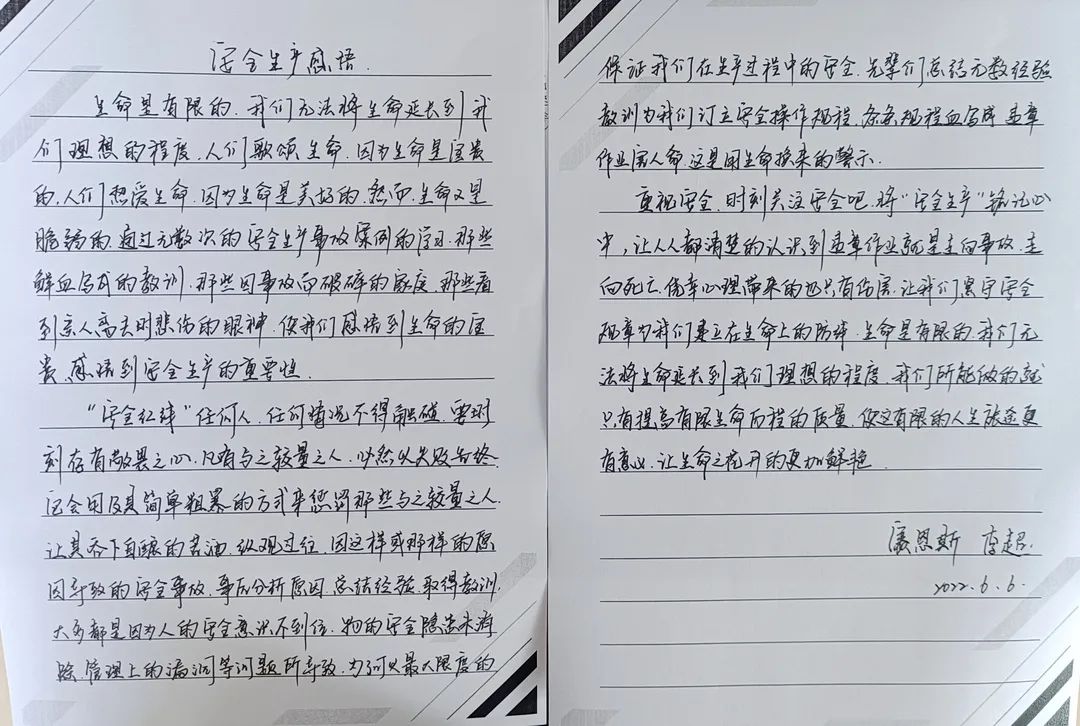 安全生产感悟.
生命是有限的.我们无法将生命延长到我
们理想的程度,人们歌颂生命.因为生命是宝贵
的,人们热爱生命.因为生命是美好的.然而.生命又是
脆弱的.通过无数次的安全生产事故案例的学习.那些
鲜血写成的教训.那些因事故而破碎的家庭.那些看
到亲人离去时悲伤的眼神.使我们感悟到生命的宝
贵.感悟到安全生产的重要性.
"安全红线"任何人.任何情况不得触碰.要时
刻存有敬畏之心.凡有与之较量之人.必然以失败告终.
它会用及其简单粗暴的方式来惩罚那些与之较量之人.
让其吞下自酿的苦酒.纵观过往.因这样或那样的原
因导致的安全事故.事后分析原因.总结经验.取得教训.
大多都是因为人的安全意识不到位.物的安全隐患未消
除.管理上的漏洞等问题所导致.为了最大限度的
保证我们在生产过程中的安全.先辈们总结无数经验
教训为我们订立安全操作规程.条条规程血写成.违章
作业害人命.这是用生命换来的警示.
重视安全.时刻关注安全吧.将"安全生产"铭记心
中,让人人都清楚的认识到违章作业就是走向事故.走
向死亡.侥幸心理带来的也只有伤害.让我们遵守安全
规章为我们建立在生命上的防线.生命是有限的.我们无
法将生命延长到我们理想的程度.我们所能做的就
只有提高有限生命历程的质量.使这有限的人生旅途更
有意义.让生命之花开的更加鲜艳.
康恩斯 李超.
2022.6.6.